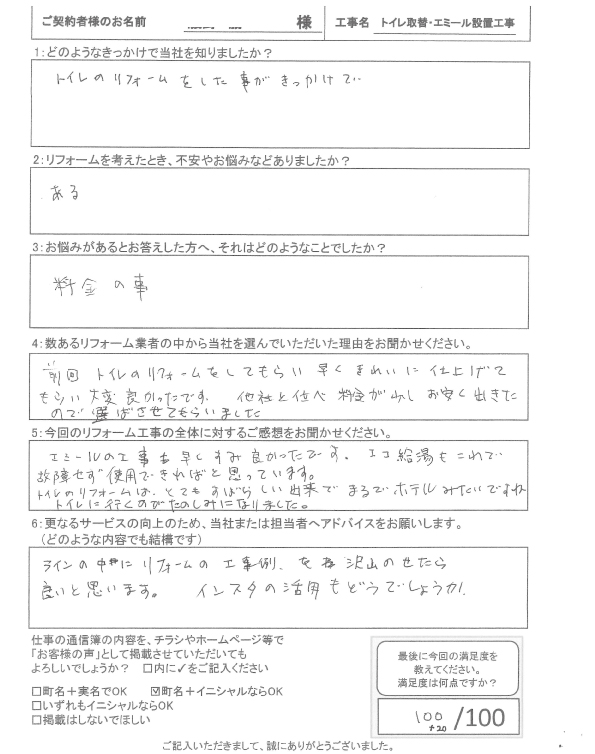 ご契約者様のお名前 様 工事名 トイレ取替・エミール設置工事
1:どのようなきっかけで当社を知りましたか?
トイレのリフォームをした事がきっかけで
2:リフォームを考えたとき、不安やお悩みなどありましたか?
ある
3:お悩みがあるとお答えした方へ、それはどのようなことでしたか?
料金の事
4:数あるリフォーム業者の中から当社を選んでいただいた理由をお聞かせください。
前回 トイレのリフォームをしてもらい 早くきれいに仕上げて
もらい 大変 良かったです。 他社と比べ 料金が少し お安く出きた
ので 選ばさせてもらいました
5:今回のリフォーム工事の全体に対するご感想をお聞かせください。
エミールの工事も早くすみ良かったです。エコ給湯もこれで
故障せず使用できればと思っています。
トイレのリフォームは、とてもすばらしい出来で まるでホテルみたいですね
トイレに行くのがたのしみになりました。
6:更なるサービスの向上のため、当社または担当者へアドバイスをお願いします。
(どのような内容でも結構です)
ラインの中にリフォームの工事例、を 沢山のせたら
良いと思います。 インスタの活用もどうでしょうか。
仕事の通信簿の内容を、チラシやホームページ等で
「お客様の声」として掲載させていただいても
よろしいでしょうか? □内に✓をご記入ください
□町名+実名でOK ☑町名+イニシャルならOK
□いずれもイニシャルならOK
□掲載はしないでほしい
最後に今回の満足度を
教えてください。
満足度は何点ですか?
100 /100
+20
ご記入いただきまして、誠にありがとうございました。